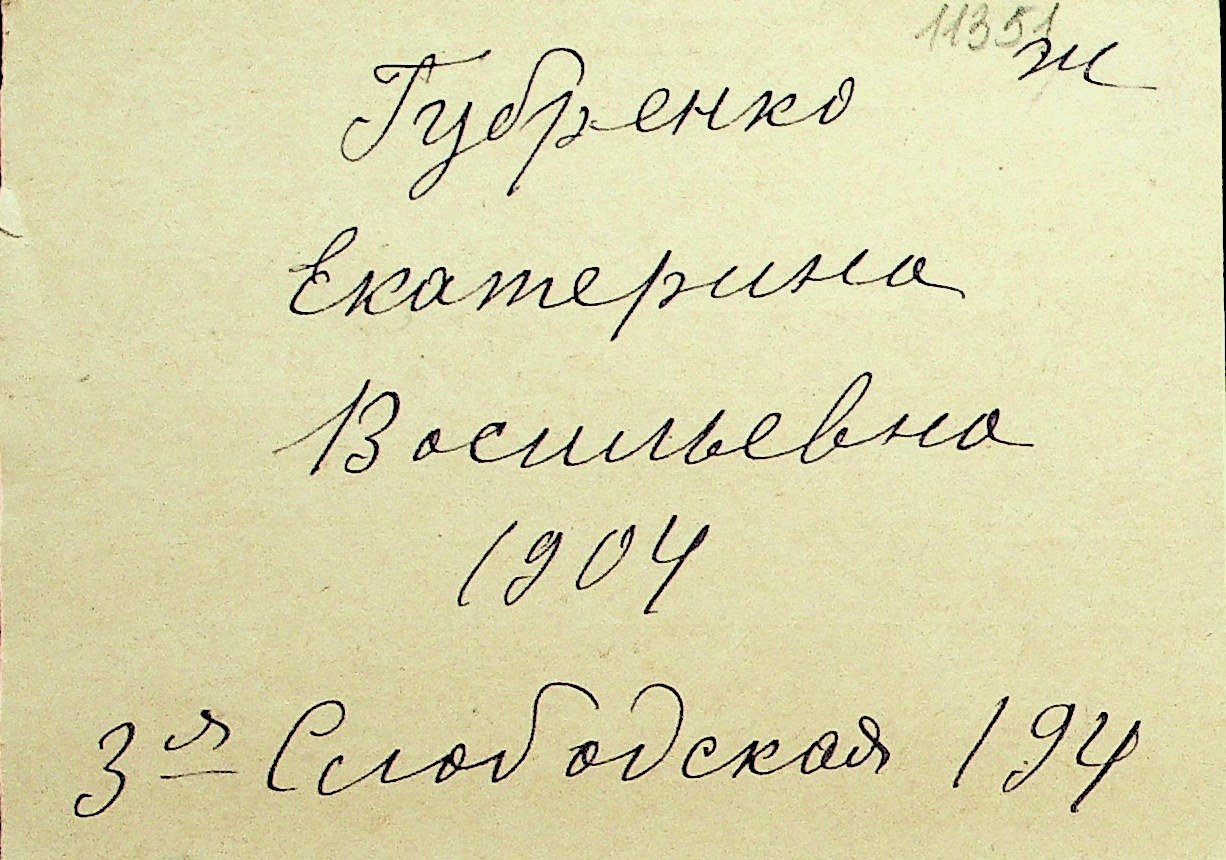 11351
ж
Губренко
Екатерина
Васильевна
1904
3-я Слободская 194